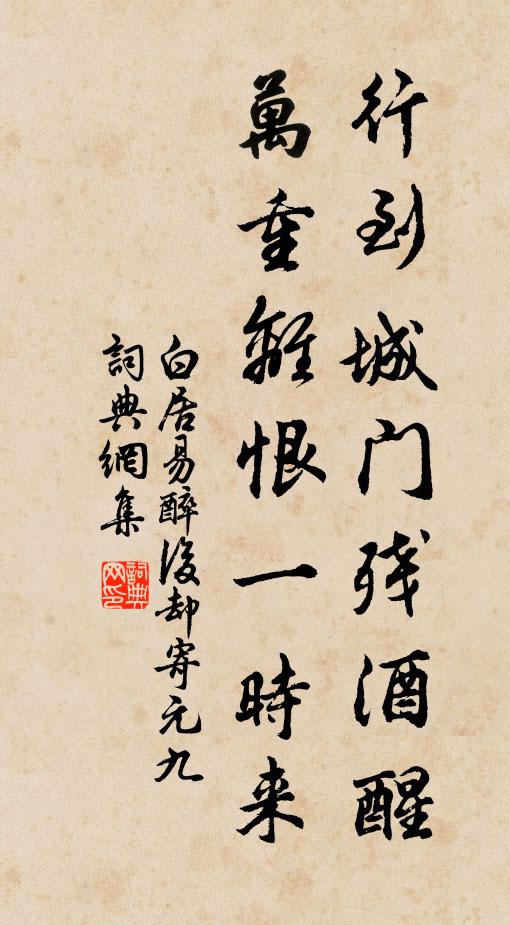 行到城门残酒醒
萬重離恨一時来
白居易醉後却寄元九
詞典網集
詞典网印